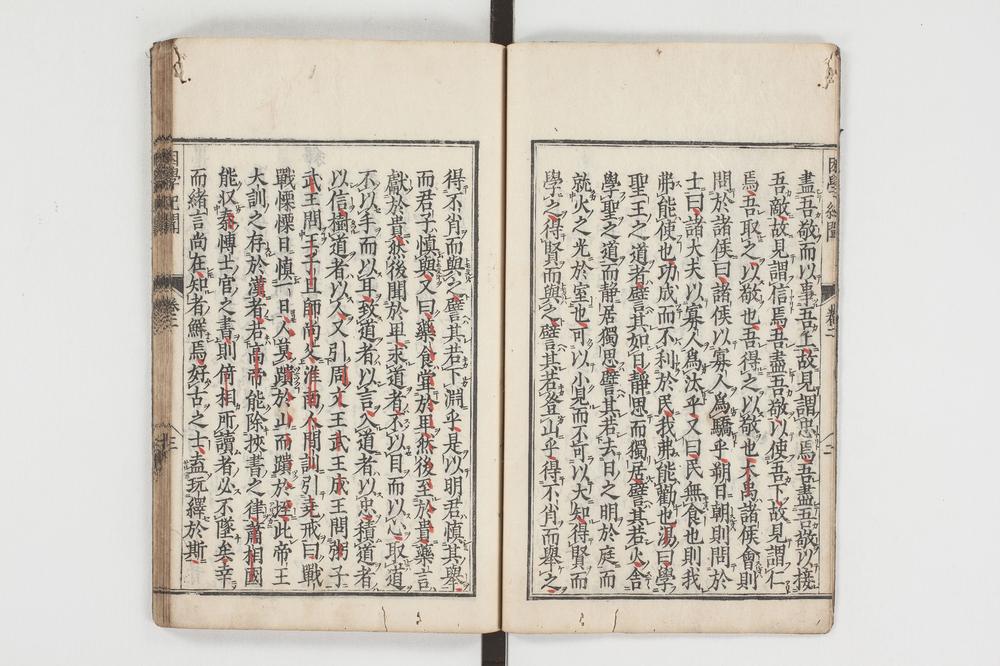 盡吾敬而以事吾上故見謂忠焉吾盡吾敬以接
吾敵故見謂信焉吾盡吾敬以使吾下故見謂仁
焉吾取之以敬也吾得之以敬也大禹諸侯會則
問於諸侯曰諸侯以寡人爲驕乎朔日朝則問於
士曰諸大夫以寡人爲汰乎又曰民無食也則我
弗能使也功成而不利於民我弗能勸也湯曰學
聖王之道者譬其如日静思而獨居譬其若火舎
學聖之道而静居獨思譬其若去日之明於庭而
就火之光於室也可以小見而不可以大知得賢而
學之得賢而與之譬其若登山乎得不肖而舉之
得不肖而與之譬其若下淵乎是以明君慎其舉
而君子慎與又曰藥食嘗於卑然後至於貴藥言
獻於貴然後聞於卑求道者不以目而以心取道
不以手而以耳致道者以言入道者以忠積道者
以信樹道者以人又引周文王武王成王問粥子
武王問王子旦師尚父淮南人間訓引堯戒曰戰
戰慄慄日慎一日人莫蹪於山而蹪於垤此帝王
大訓之存於漢者若高帝能除挾書之律蕭相國
能收秦博士官之書則倚相所讀者必不墜矣幸
而緒言尚在知者鮮焉好古之士盍玩繹於斯
困學紀聞
卷二